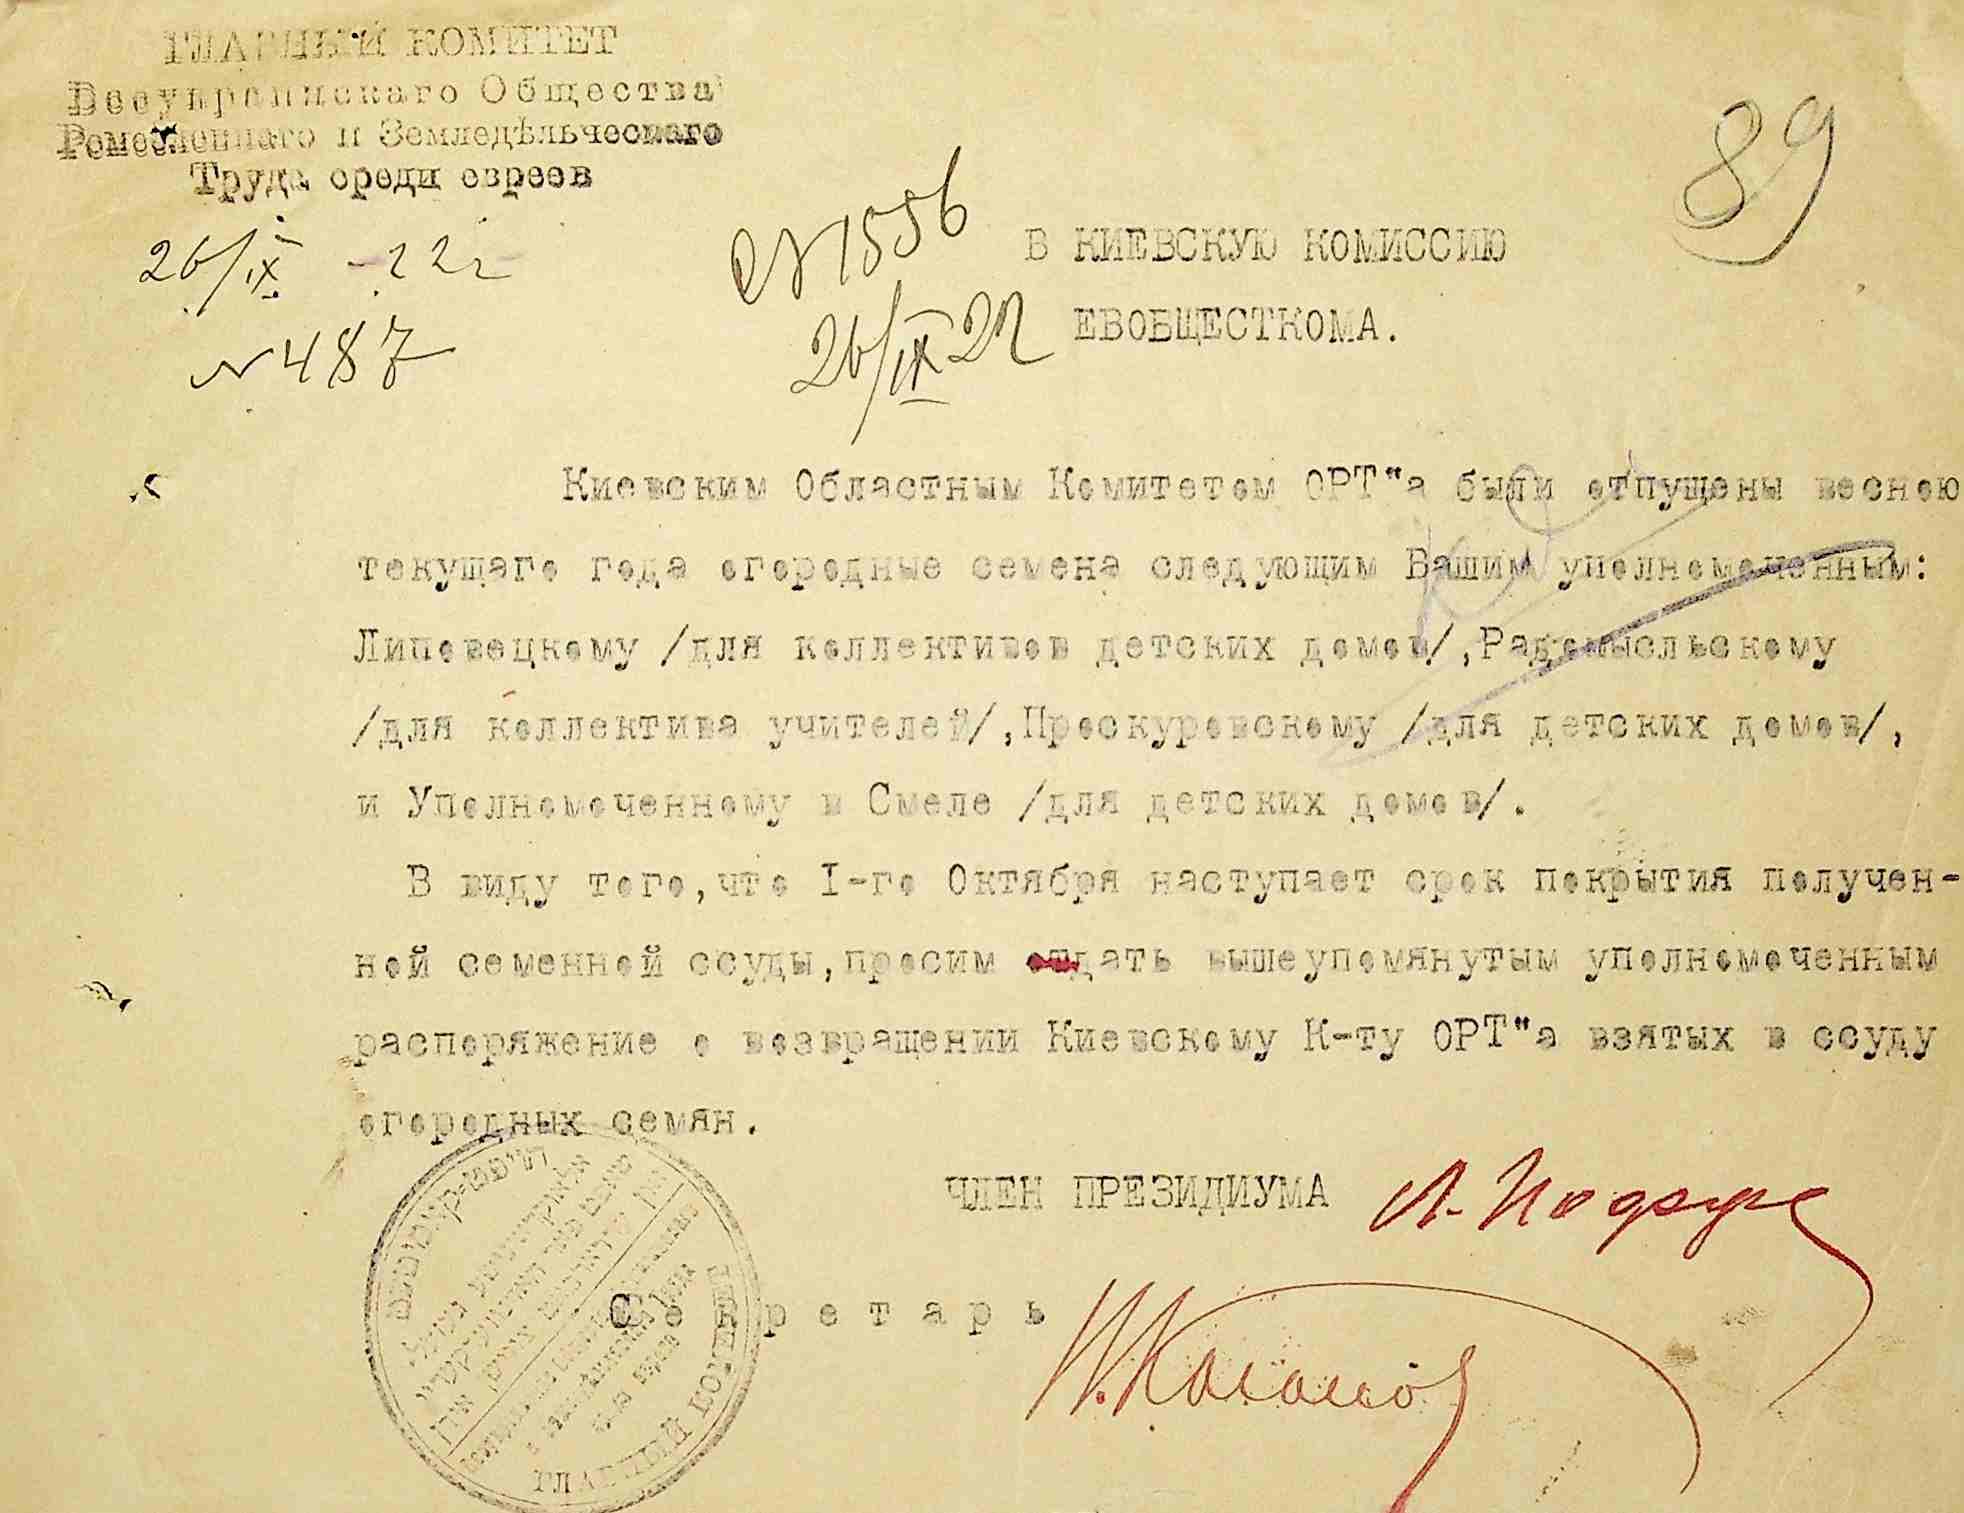 ГЛАВНЫЙ КОМИТЕТ
Всеукраинскаго Общества
Ремесленнаго и Земледѣльческаго
Труда среди евреев
26/IX -22г
№487
№1556
26/IX 22
89
В КИЕВСКУЮ КОМИССИЮ
ЕВОБЩЕСТКОМА.
Киевским Областным Комитетом ОРТ"а были отпущены весною
текущаго года огородные семена следующим Вашим уполномоченным:
Липовецкому /для коллективов детских домов/,Радомысльскому
/для коллектива учителей/,Проскуровскому /для детских домов/,
и Уполномоченному в Смеле /для детских домов/.
В виду того,что I-го Октября наступает срок покрытия получен-
ной семенной ссуды,просим отдать вышеупомянутым уполномоченным
распоряжение о возвращении Киевскому К-ту ОРТ"а взятых в ссуду
огородных семян.
ЧЛЕН ПРЕЗИДИУМА
Секретарь
ГЛАВНЫЙ КОМИТЕТ